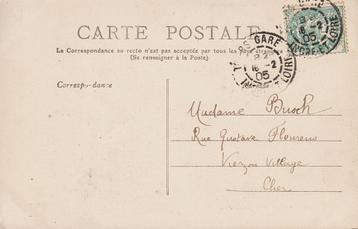 CARTE POSTALE
La Correspondance au recto n'est pas acceptée par tous les pays étrangers
(Se renseigner à la Poste)
Correspondance
GARE
16 -2
05
INDRE ET LOIRE
Madame Busch
Rue Gustave Flourens
Vierzon Village
Cher